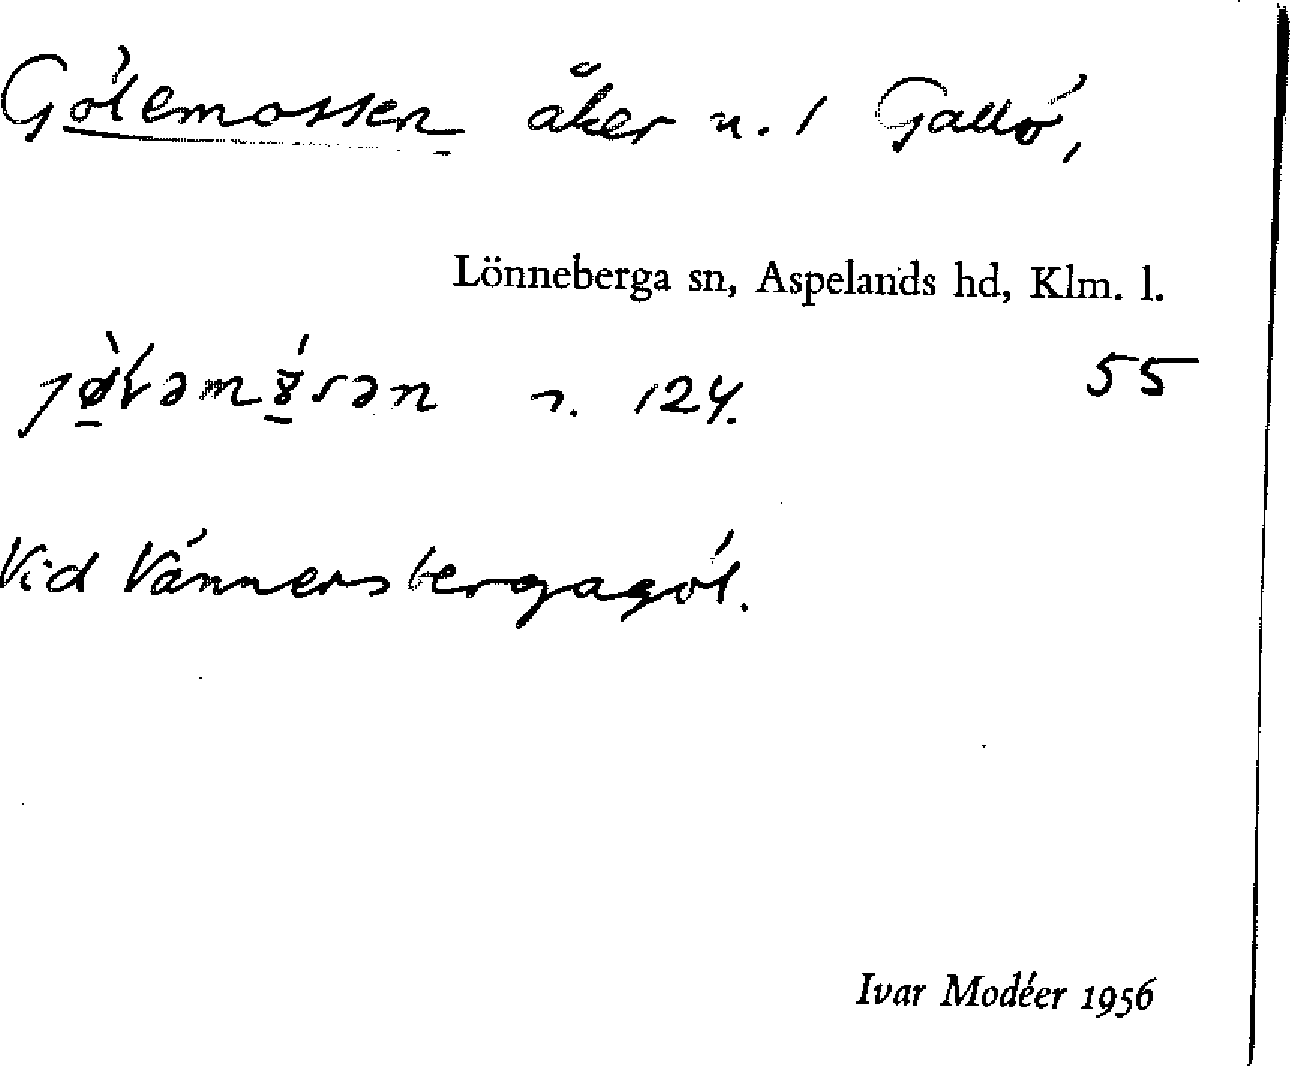 Gölemossen åker n. 1 Gallö,
Lönneberga sn, Aspelands hd, Klm. l.
55
124.
Vid Vännersbergagöl.
Ivar Modéer 1956